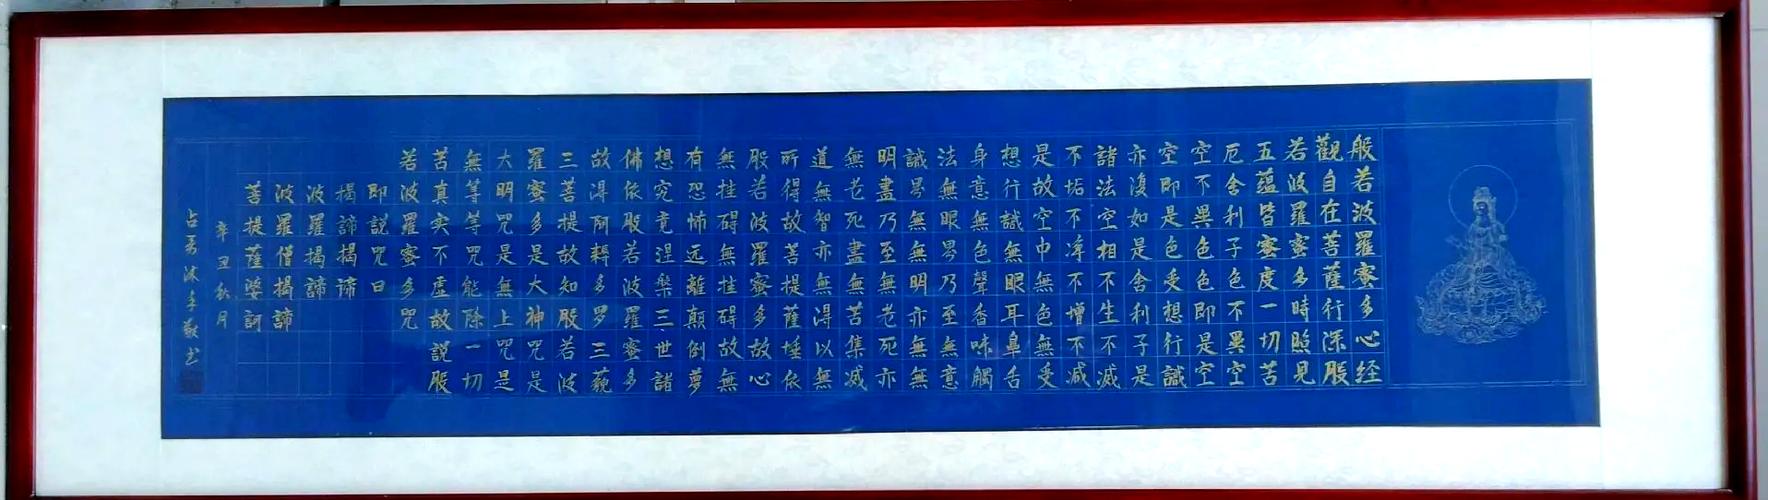 般若波羅蜜多心经
觀自在菩薩行深般
若波羅蜜多時照見
五蕴皆蜜度一切苦
厄舍利子色不異空
空不異色色即是空
空即是色受想行識
亦復如是舍利子是
諸法空相不生不滅
不垢不淨不增不減
是故空中無色無受
想行識無眼耳鼻舌
身意無色聲香味觸
法無眼界乃至無意
識界無無明亦無無
明盡乃至無老死亦
無老死盡無苦集滅
道無智亦無得以無
所得故菩提薩埵依
般若波羅蜜多故心
無挂碍無挂碍故無
有恐怖远離顛倒夢
想究竟涅槃三世諸
佛依般若波羅蜜多
故得阿耨多罗三藐
三菩提故知般若波
羅蜜多是大神咒是
大明咒是無上咒是
無等等咒能除一切
苦真实不虚故説般
若波羅蜜多咒
即説咒曰
揭諦揭谛
波羅揭諦
波羅僧揭諦
菩提薩婆訶
辛丑秋月
沐手敬书